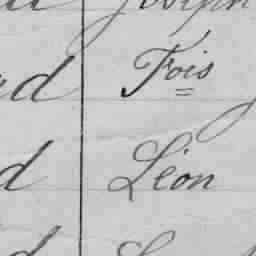 Joseph
d Fois
d Léon